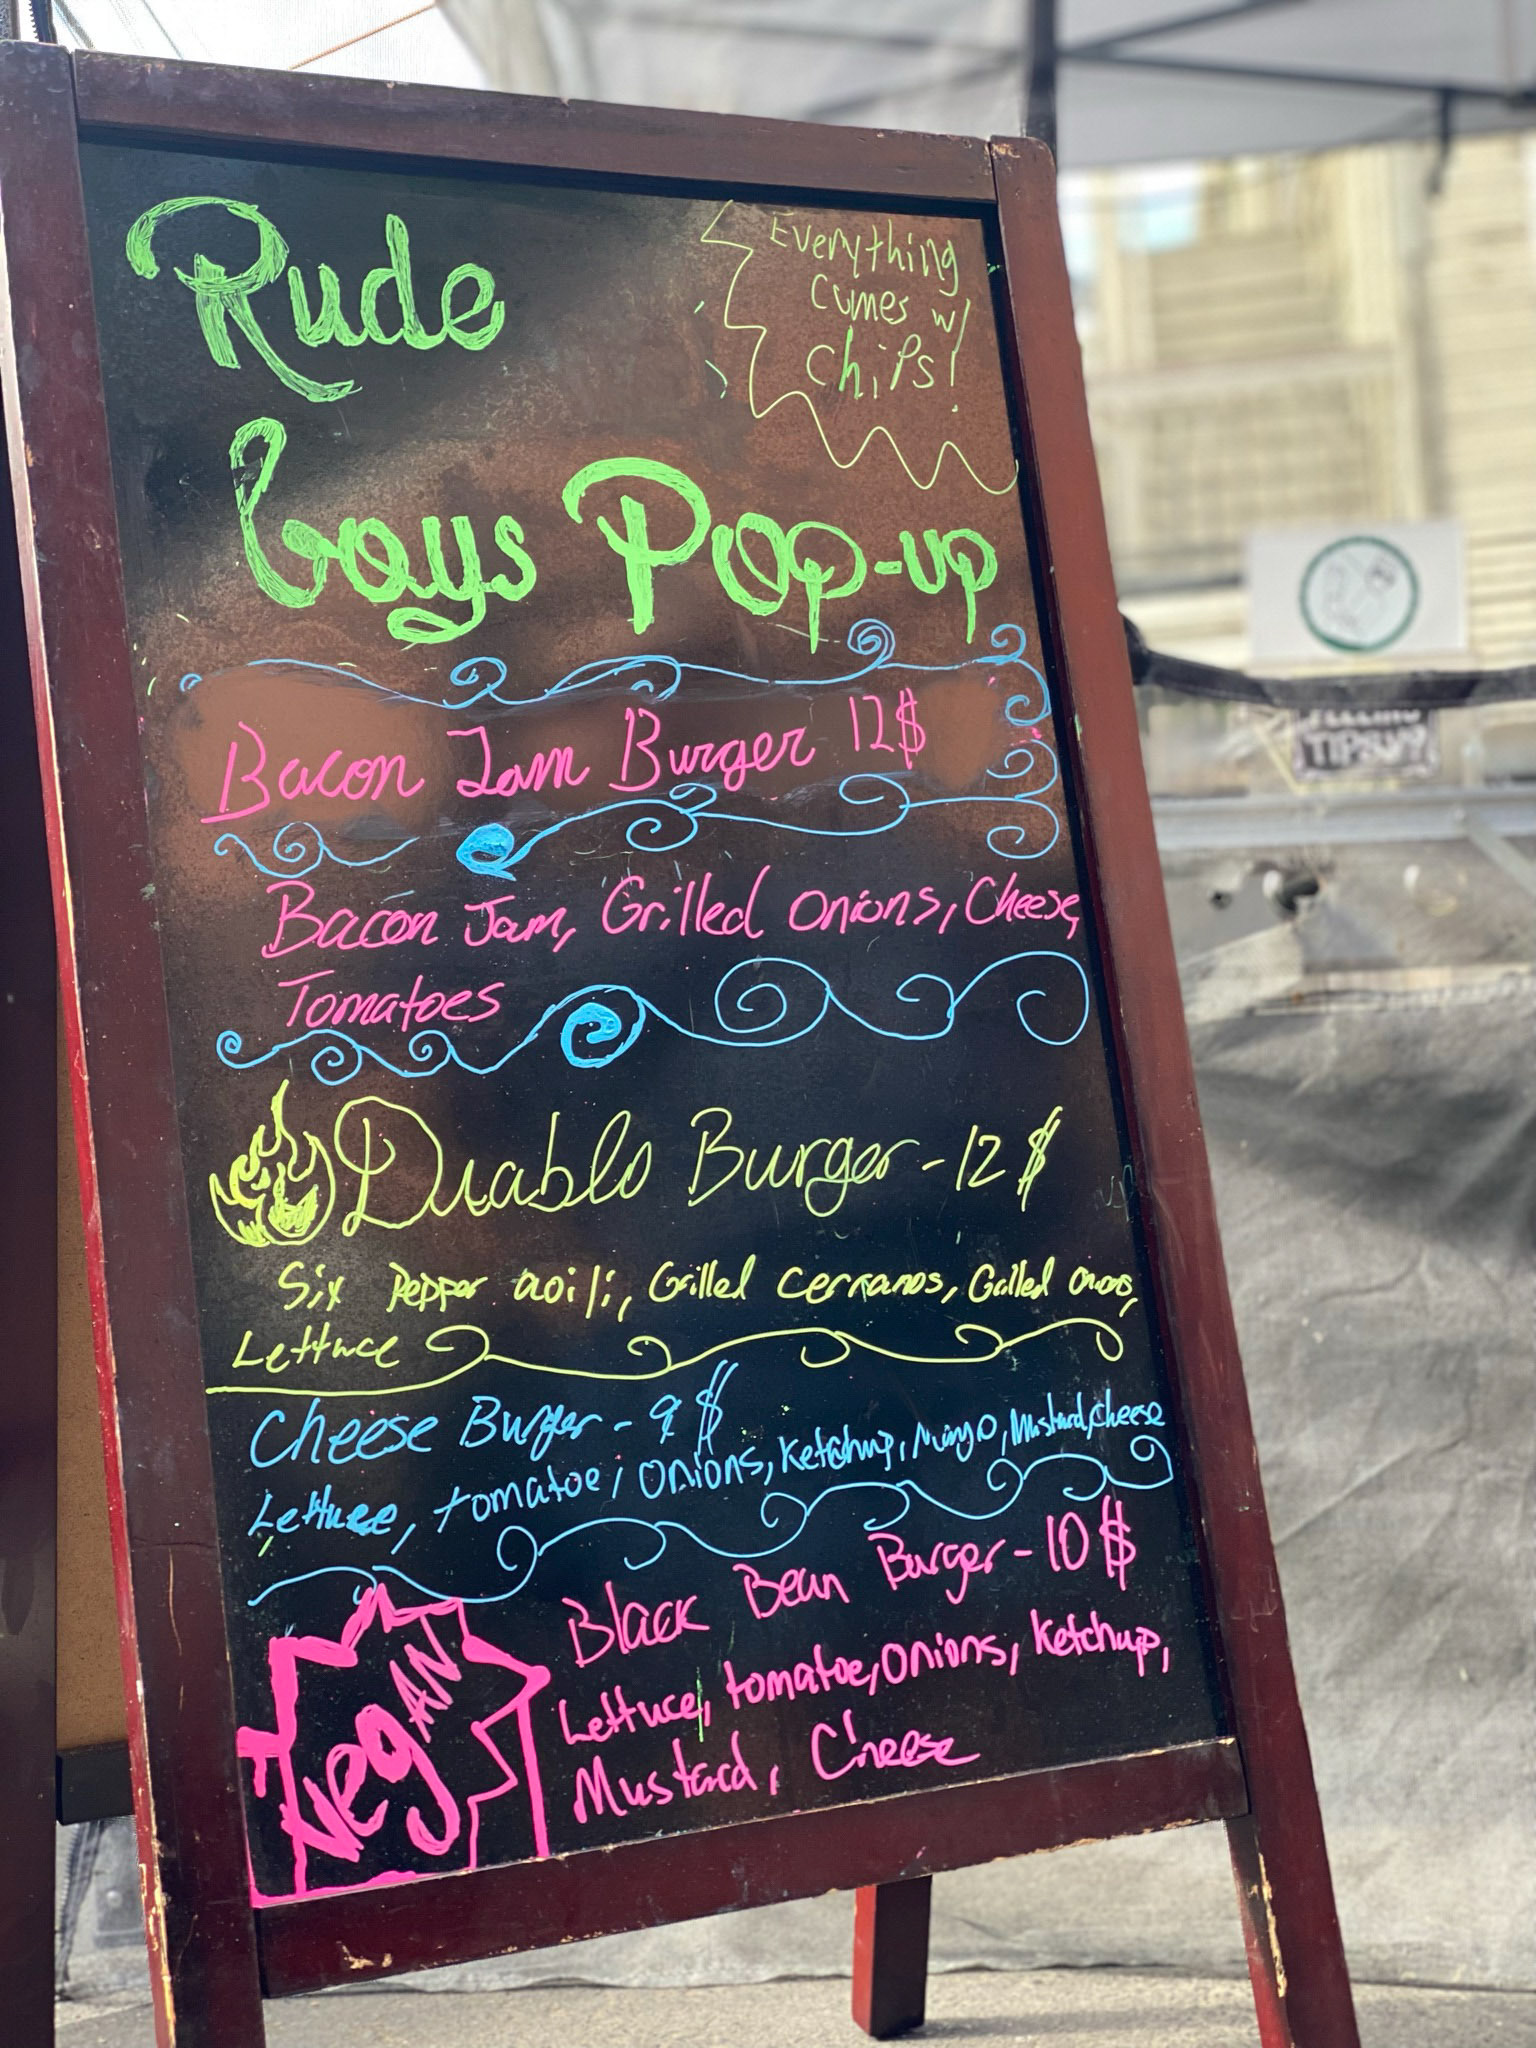 Rude
boys Pop-up
Everything
Comes w/
Chips!
Bacon Jam Burger 12$
Bacon Jam, Grilled Onions, Cheese,
Tomatoes
Diablo Burger - 12$
Six Pepper aoili, Grilled cerranos, Grilled onions,
Lettuce
Cheese Burger - 9$
Lettuce, tomatoe, Onions, Ketchup, Mayo, Mustard, Cheese
Vegan
Black Bean Burger - 10$
Lettuce, tomatoe, Onions, Ketchup,
Mustard, Cheese
TIPSY?